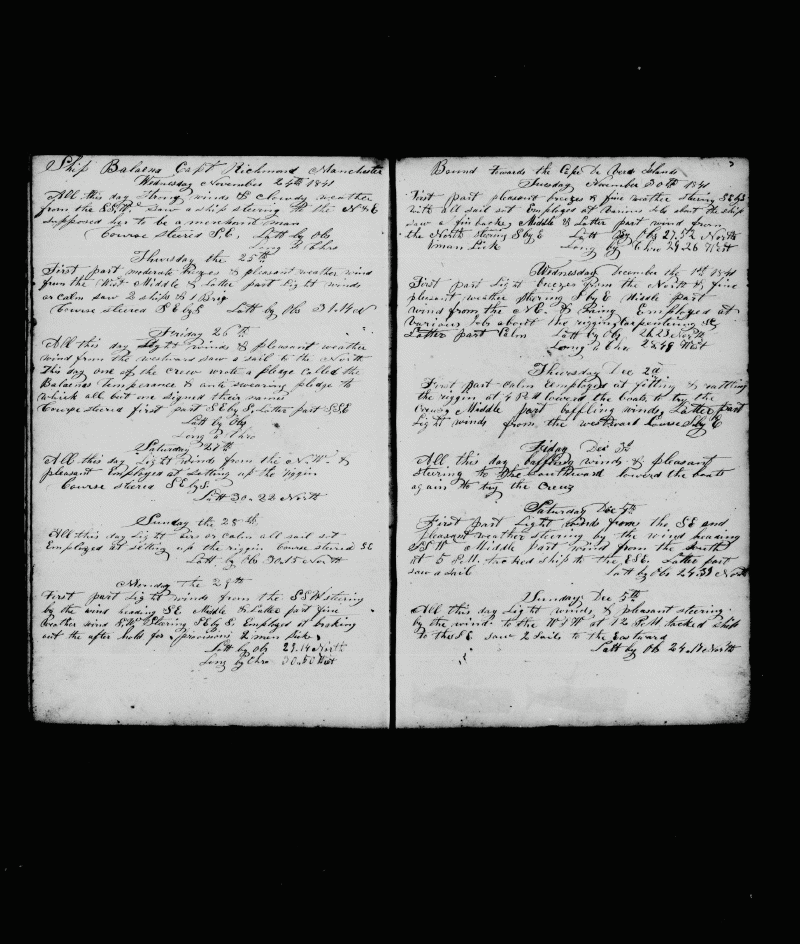 Ship Balaena Capt Richmond Manchester
Wednesday November 24th 1841
All this day Strong winds & Cloudy weather
from the SSW. Saw a ship steering to the N & E
supposed her to be a merchant man
Course steered S.E. Latt by Obs
Long by Chro
Thursday the 25th
First part moderate Breezes & pleasant weather wind
from the West. Middle & Latter part Light winds
or calm saw 2 ships & 1 Brig
Course steered S E by S Latt by Obs 31.14 N
Friday 26th
All this day Light winds & pleasant weather
wind from the westward saw a sail to the North
This day one of the Crew wrote a plege called the
Balaenas Temperance & anti swearing pledge to
which all but one signed their name
Course steered first part SE by S, Latter part SSE
Latt by Obs
Long by Chro
Saturday 27th
All this day Light winds from the N.W. &
pleasant Employed at setting up the riggin
Course steered SE by S
Latt 30.22 North
Sunday the 28th
All this day Light airs or Calm all sail set
Employed at setting up the riggin Course steered SE
Latt by Obs 30.15 North
Monday the 29th
First part Light winds from the SSW steering
by the wind heading SE. Middle & Latter part fine
weather wind Steering SE by S. Employed at breaking
out the after hold for provisions 2 men sick
Latt by Obs 29.14 North
Long by Chro 30.50 West
Bound towards the Cape De Verd Islands
Tuesday November 30th 1841
First part pleasant breezes & fine weather steering SE by S
with all sail set Employed at Various Jobs about the ship
saw a fin back, Middle & Latter part wind from
the North steering S by E Latt by Obs 27.52 North
1 man Sick Long by Chro 29.26 West
Wednesday December the 1st 1841
First part Light breezes from the North & fine
pleasant weather steering S by E Middle part
wind from the N.E. & Employed at
various Jobs about the riggin Carpentering &c
Latter part Calm Latt by Obs 26.23 North
Long by Chro 28.49 West
Thursday Dec 2d
First part Calm Employed at fitting & ratling
the riggin at 4 P.M lowerd the boats to try the
Crews Middle part baffling winds, Latter part
Light winds from the westward Course S by E
Friday Dec 3d
All this day baffling winds & pleasant
steering to the Southward lowerd the boats
again to try the Crews
Saturday Dec 4th
First part Light winds from the SE and
pleasant weather steering by the wind heading
SSW Middle part wind from the South
at 5 P.M. tacked ship to the ESE. Latter part
saw a sail Latt by Obs 24.39 North
Sunday Dec 5th
All this day Light winds & pleasant steering
by the wind to the WSW at 12 P.M tacked ship
to the SE saw 2 sails to the Eastward
Latt by Ob 24 North